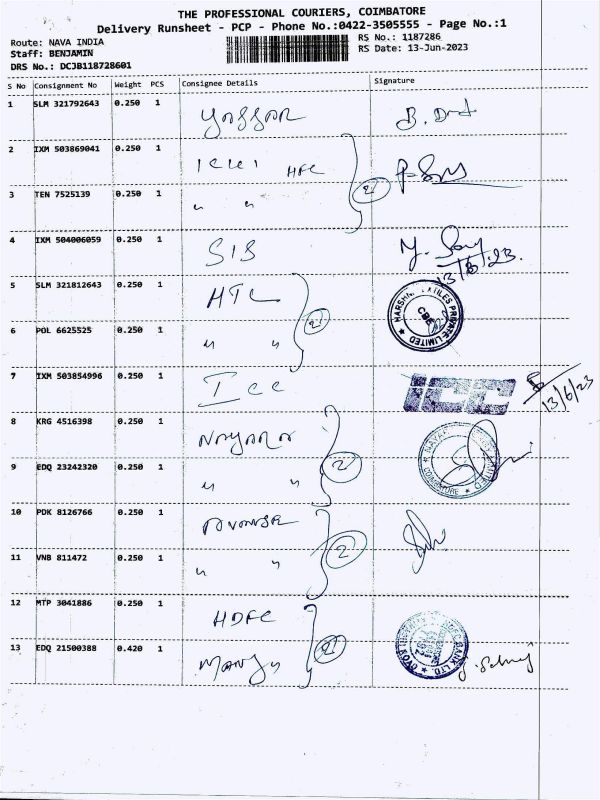 THE PROFESSIONAL COURIERS, COIMBATORE
Delivery Runsheet - PCP - Phone No.:0422-3505555 - Page No.:1
Route: NAVA INDIA
Staff: BENJAMIN
DRS No.: DCJB118728601
RS No.: 1187286
RS Date: 13-Jun-2023
S No Consignment No Weight PCS Consignee Details Signature
1 SLM 321792643 0.250 1
2 IXM 503869041 0.250 1 HFC
3 TEN 7525139 0.250 1 " "
2
4 IXM 504006059 0.250 1 SIS
13/6/23.
5 SLM 321812643 0.250 1 HTL
6 POL 6625525 0.250 1 " "
2
PRIVATE LIMITED
CBE
7 IXM 503854996 0.250 1 ICC ICC
13/6/23
8 KRG 4516398 0.250 1
9 EDQ 23242320 0.250 1 " "
2
COIMBATORE
10 PDK 8126766 0.250 1
11 VNB 811472 0.250 1 " "
2
12 MTP 3041886 0.250 1 HDFC
13 EDQ 21500388 0.420 1
2
BANK LTD.